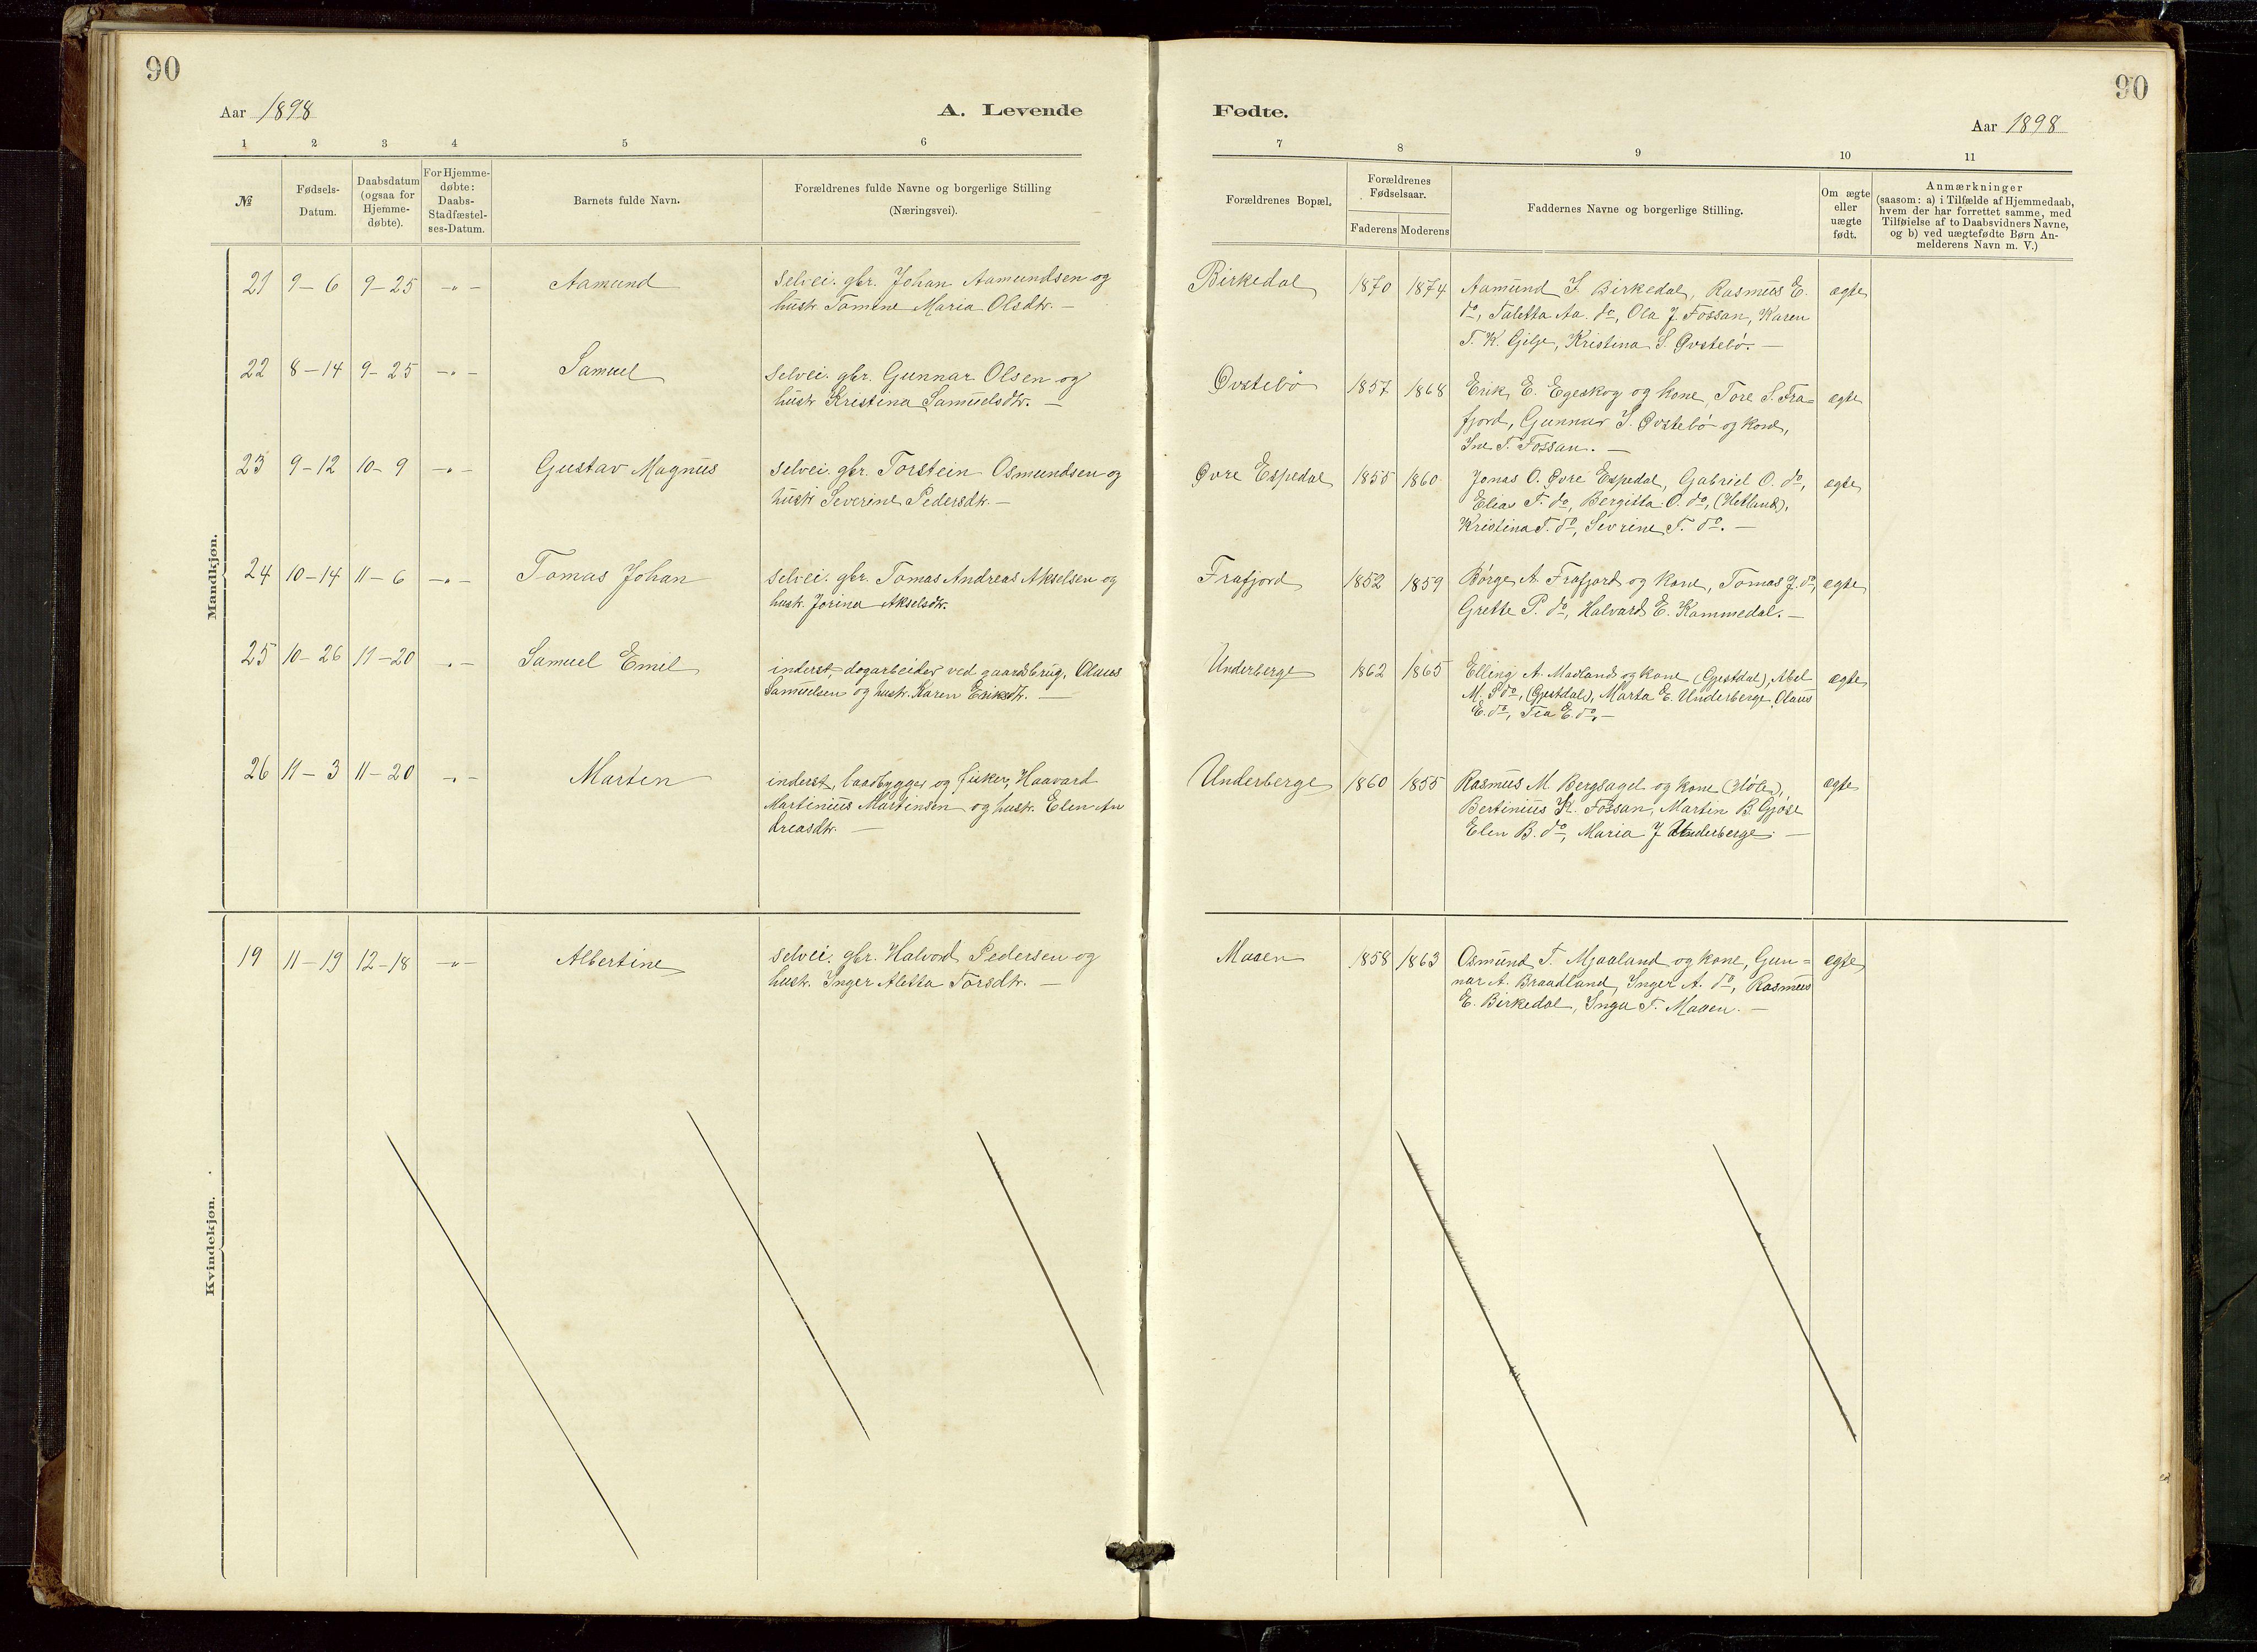 90
Aar 1898
A. Levende
1 2 3 4 5 6
№
Fødsels-
Datum.
Daabsdatum
(ogsaa for
Hjemme-
døbte).
For Hjemme-
døbte:
Daabs-
Stadfæstel-
ses-Datum.
Barnets fulde Navn.
Forældrenes fulde Navne og borgerlige Stilling
(Næringsvei).
Mandkjøn.
21 9-6 9-25 -"- Aamund selvei. gbr. Johan Aamundsen og
hustr. Tomine Maria Olsdtr. -
22 8-14 9-25 -"- Samuel selvei. gbr. Gunnar Olsen og
hustr Kristina Samuelsdtr. -
23 9-12 10-9 -"- Gustav Magnus selvei. gbr. Torstein Osmundsen og
hustr Severine Pedersdtr. -
24 10-14 11-6 -"- Tomas Johan selvei. gbr. Tomas Andreas Akselsen og
hustr. Jorina Akselsdtr.
25 10-26 11-20 -"- Samuel Emil inderst, dagarbeider ved gaardsbrug, Olaus
Samuelsen og hustr. Karen Eriksdtr. -
26 11-3 11-20 -"- Marten inderst, baadbygger og fisker, Haavard
Martinius Martinsen og hustr. Elen An
dreasdtr. -
Kvindekjøn.
19 11-19 12-18 -"- Albertine selvei. gbr. Halvord Pedersen og
hustr. Inger Aletta Torsdtr. -
90
Fødte.
Aar 1898
7 8 9 10 11
Forældrenes Bopæl.
Forældrenes
Fødselsaar.
Faderens Moderens
Faddernes Navne og borgerlige Stilling.
Om ægte
eller
uægte
født.
Anmærkninger
(saasom: a) i Tilfælde af Hjemmedaab,
hvem der har forrettet samme, med
Tilføielse af to Daabsvidners Navne,
og b) ved uægtefødte Børn An-
melderens Navn m. V.)
Birkedal 1870 1874 Aamund S. Birkedal, Rasmus E. ægte
do, Taletta Aa. do, Ola J. Fossan, Karen
T. K. Gilje, Kristina S. Øvstebö. -
Øvstebö 1857 1868 Erik E. Egeskog og kone, Tore S. Fra= ægte
fjord, Gunnar I. Øvstebö og kone,
Ine T. Fossan. -
Øvre Espedal 1855 1860 Jonas O. Øvre Espedal, Gabriel O. do, ægte
Elias T. do, Bergitta O. do, (Hetland),
Kristina T. do, Sevrine T. do. -
Frafjord 1852 1859 Børge A. Frafjord og kone, Tomas J. do, ægte
Grette P. do, Halvard E. Kommedal. -
Underberge 1862 1865 Elling A. Madland og kone (Gjestdal), Abel ægte
M. S do, (Gjestdal), Marta E. Underberge, Olaus
E. do, Tea E. do, -
Underberge 1860 1855 Rasmus M Bergsagel og kone (Höle), ægte
Bertinius K. Fossan, Martin B. Gjöse
Elen B. do, Maria J Underberge. -
Maaen 1858 1863 Osmund T. Mjaaland og kone, Gun= ægte
nar A. Braadland, Inger A. do, Rasmus
E. Birkedal, Inga T. Maaen. -